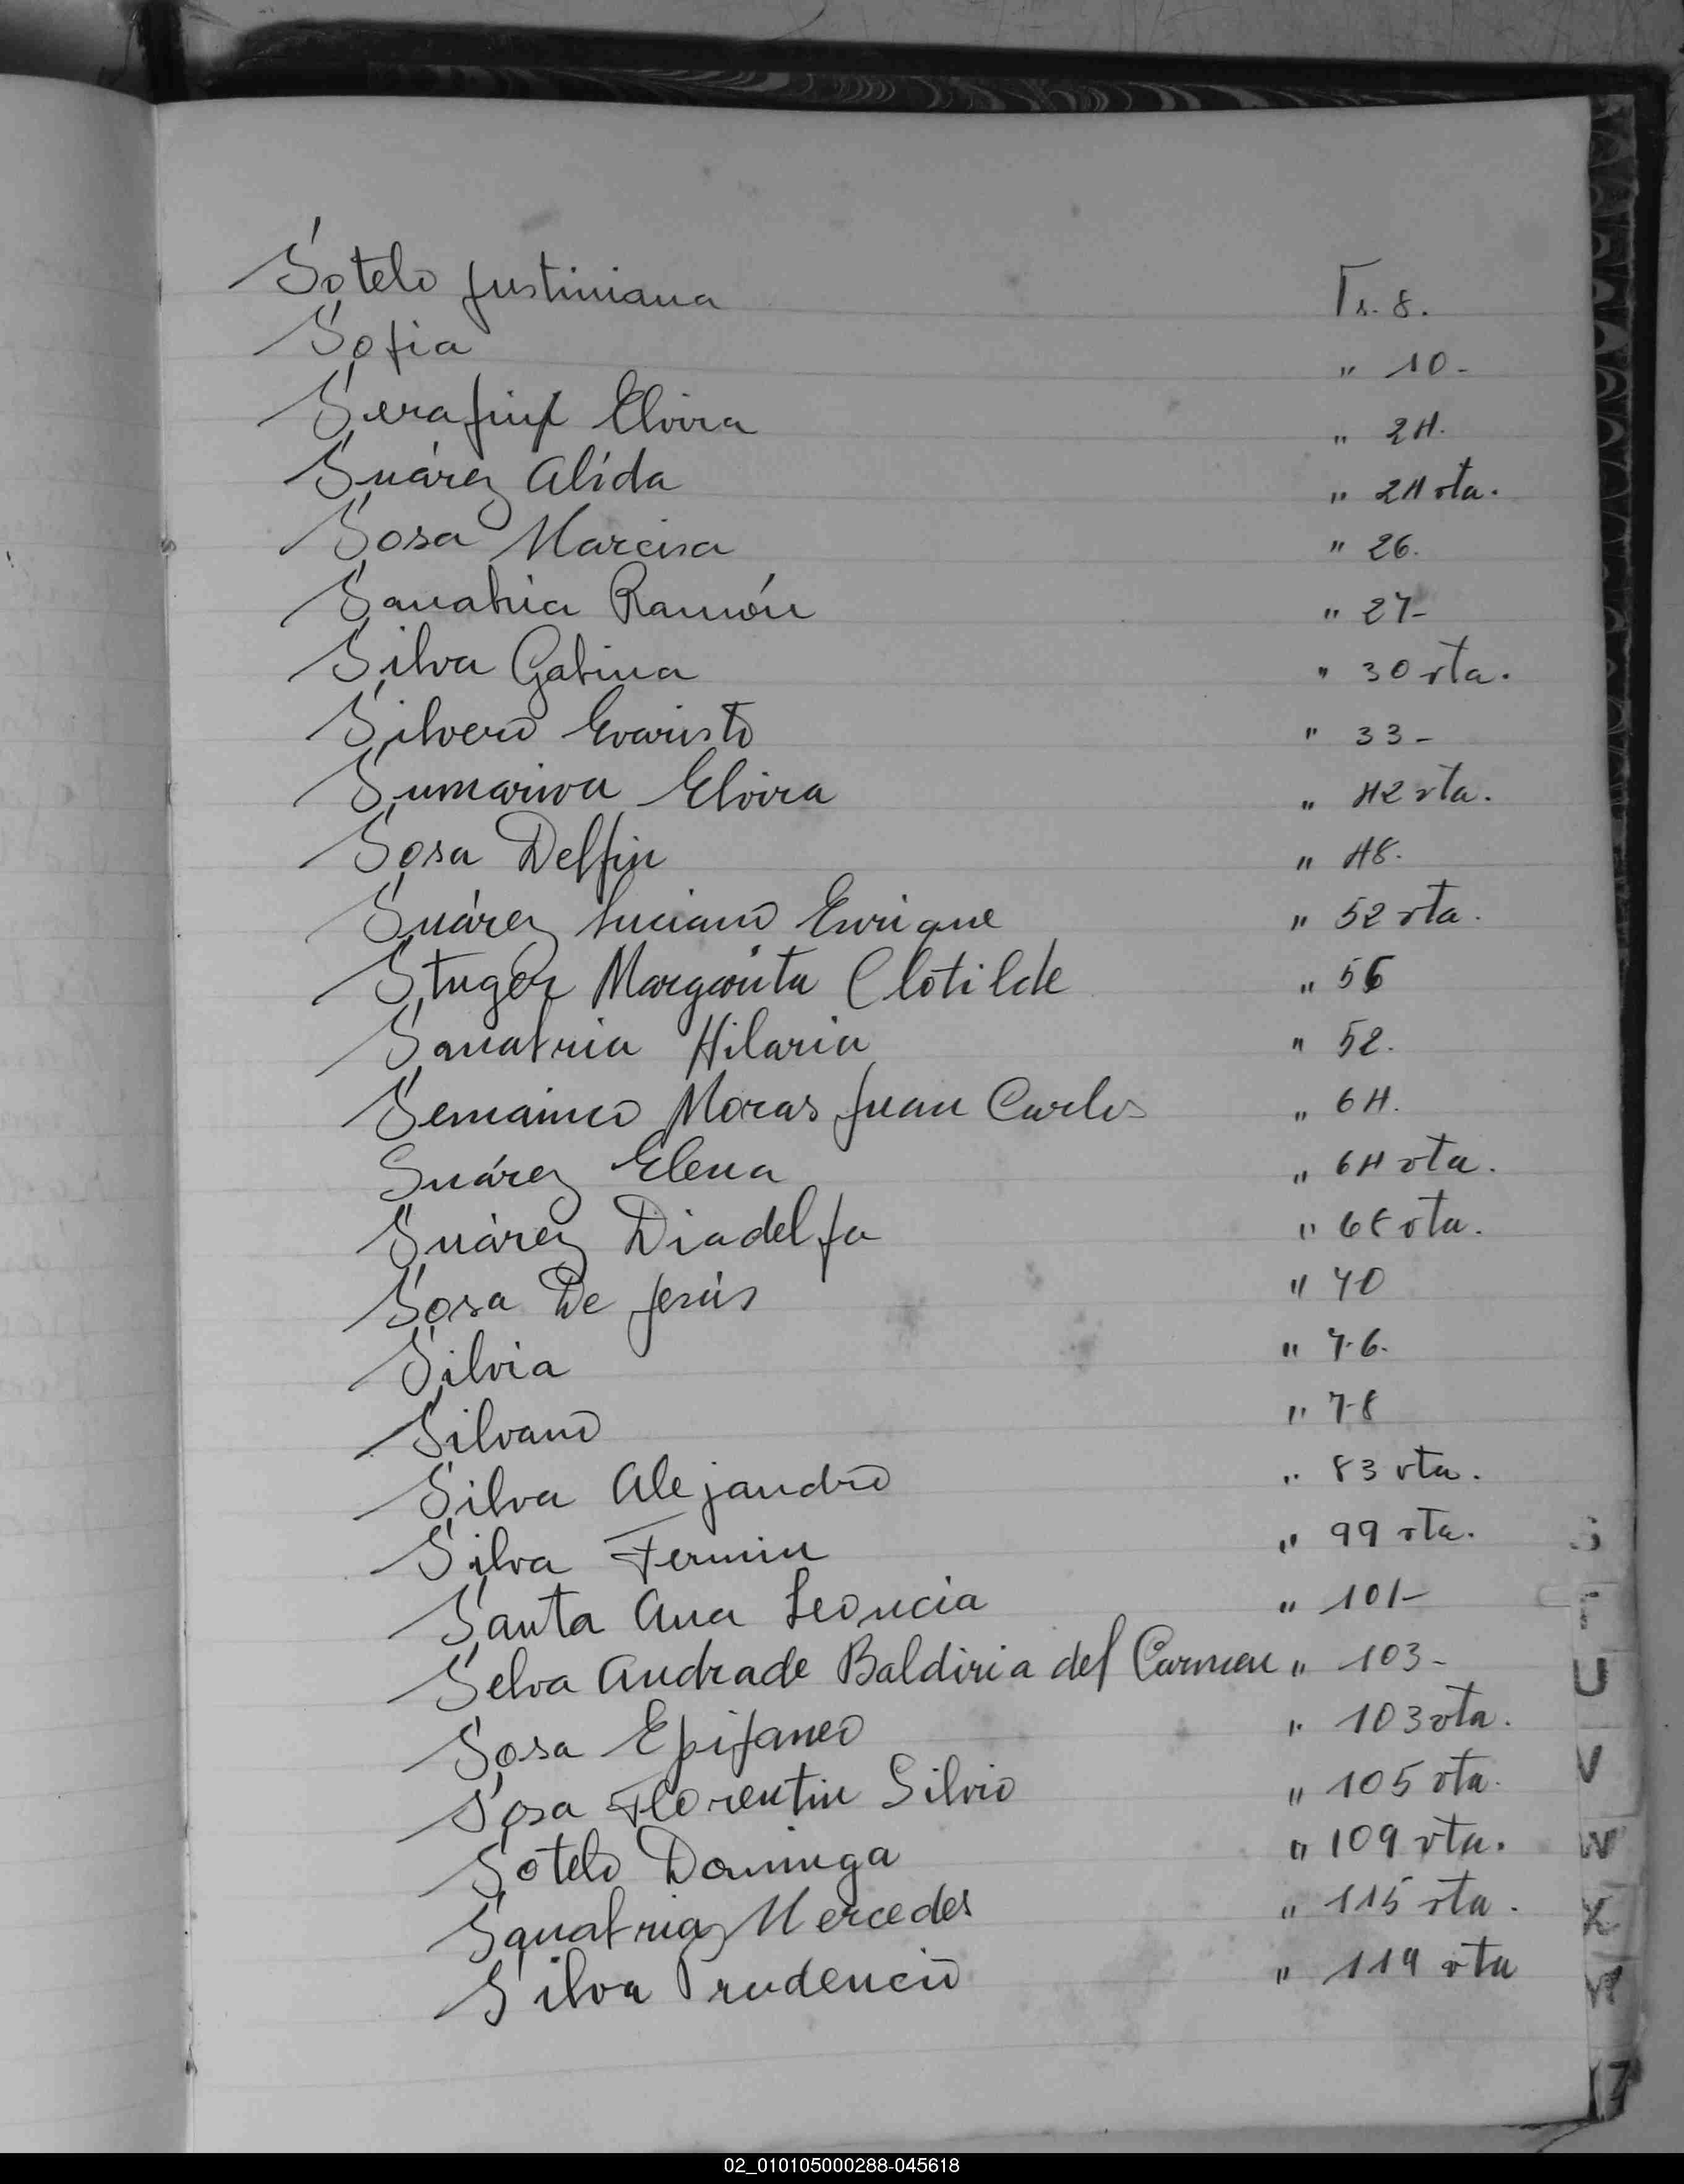 Sotelo Justiniana Fs. 8.
Sofia " 10-
Serafini Elvira " 24.
Suárez Alída " 24 vta.
Sosa Narcisa " 26.
Sanabria Ramón " 27-
Silva Gabina " 30 vta.
Silvero Evaristo " 33-
Sumariva Elvira " 42 vta.
Sosa Delfin " 48.
Suárez Luciano Enrique " 52 vta.
Margarita Clotilde " 56
Sanabria Hilaria " 52.
Moras Juan Carlos " 64.
Suárez Elena " 64 vta.
Suárez Diadelfa " 68 vta.
Sosa De Jesús " 70
Silvia " 76.
Silvano " 78
Silva Alejandro " 83 vta.
Silva Fermin " 99 vta.
Santa Ana Leoncia " 101-
Selva Andrade Baldiria del Carmen " 103-
Sosa Epifaneo " 103 vta.
Sosa Florentin Silvio " 105 vta.
Sotelo Dominga " 109 vta.
Sanabria Mercedes " 115 vta.
Silva Prudencio " 119 vta
S
T
U
V
W
X
Y
Z
02_010105000288-045618